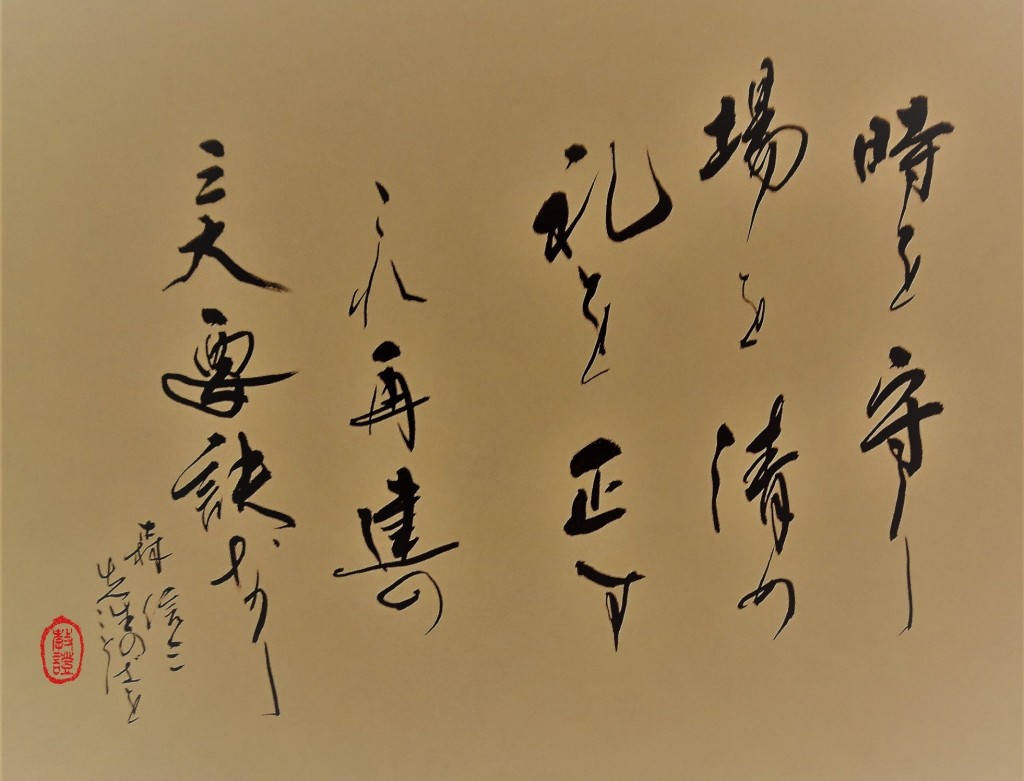 時を守り
場を清め
礼を正す
これ再建の
三大要訣なり
森信三
先生の